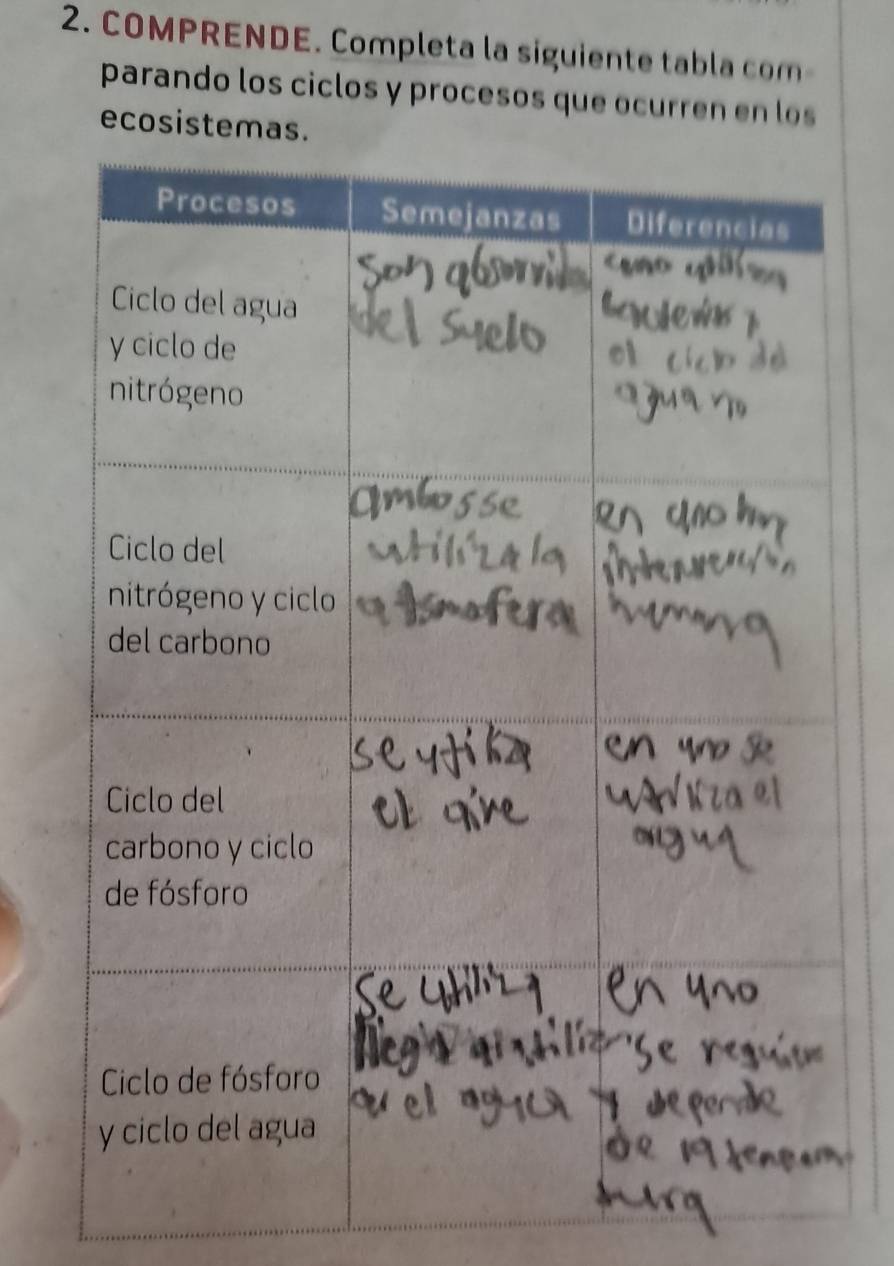 2. COMPRENDE. Completa la siguiente tabla com-
parando los ciclos y procesos que ocurren en los
ecosistemas.
Procesos Semejanzas Diferencias
Ciclo del agua
y ciclo de
nitrógeno
Son absorvida
del suelo
uno utilisan
bacterias y
el ciclo del
agua no
Ciclo del
nitrógeno y ciclo
del carbono
ambos se
utiliza la
atsmofera
en uno hay
intervención
humana
Ciclo del
carbono y ciclo
de fósforo
se utiliza
el aire
en uno se
utiliza el
agua
Ciclo de fósforo
y ciclo del agua
se utiliza
el agua
en uno
se requiere
y depende
de la tempera
tura